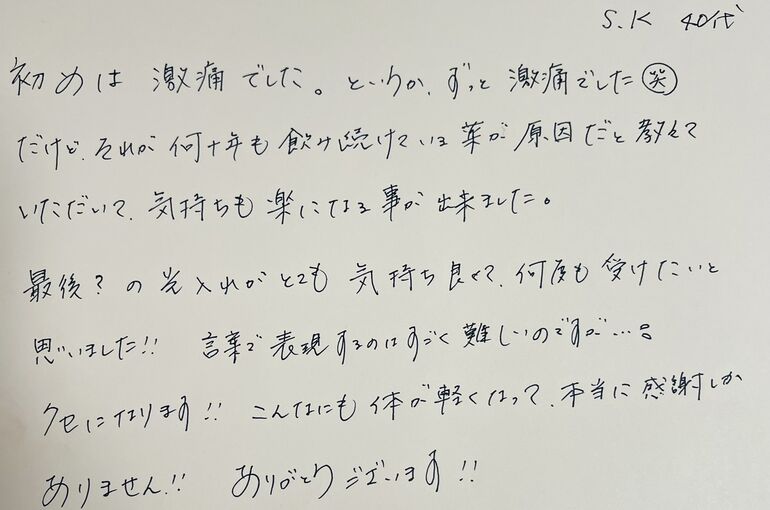 S.K 40代
初めは 激痛でした。というか、ずっと 激痛でした㊗
だけど、それが 何十年も飲み続けている薬が 原因だと教えて
いただいて、気持ちも楽になる事が出来ました。
最後?の光入れがとても 気持ち良くて、何度も受けたいと
思いました!! 言葉で表現するのはすごく難しいのですが…。
クセになります!! こんなにも 体が軽くなって、本当に感謝しか
ありません!! ありがとうございます!!